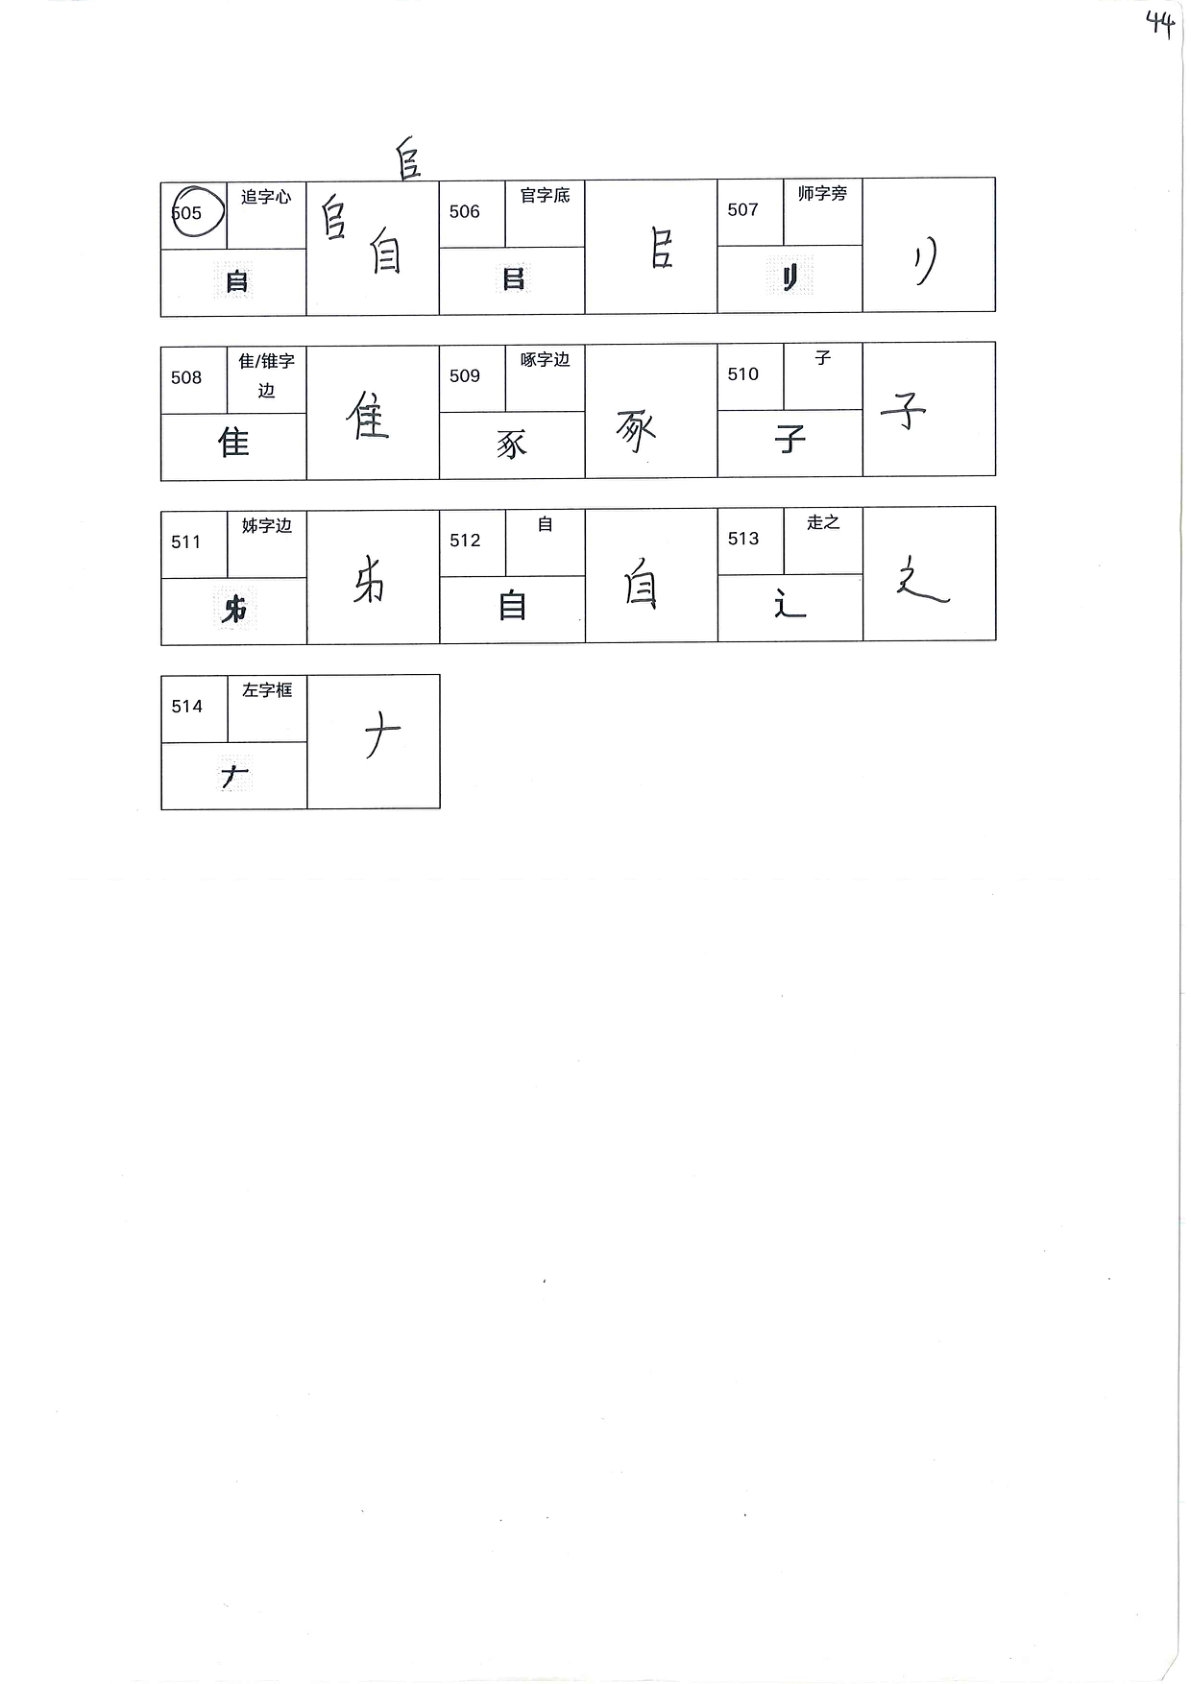 44
𠂤
505 追字心 𠂤 自 506 官字底 507 师字旁
𠂤 㠯 㠯 刂 刂
508 隹/锥字边 隹 509 啄字边 510 子 子
隹 豖 豖 子
511 姊字边 512 自 自 513 走之 辶
自 辶
514 左字框 𠂇
𠂇